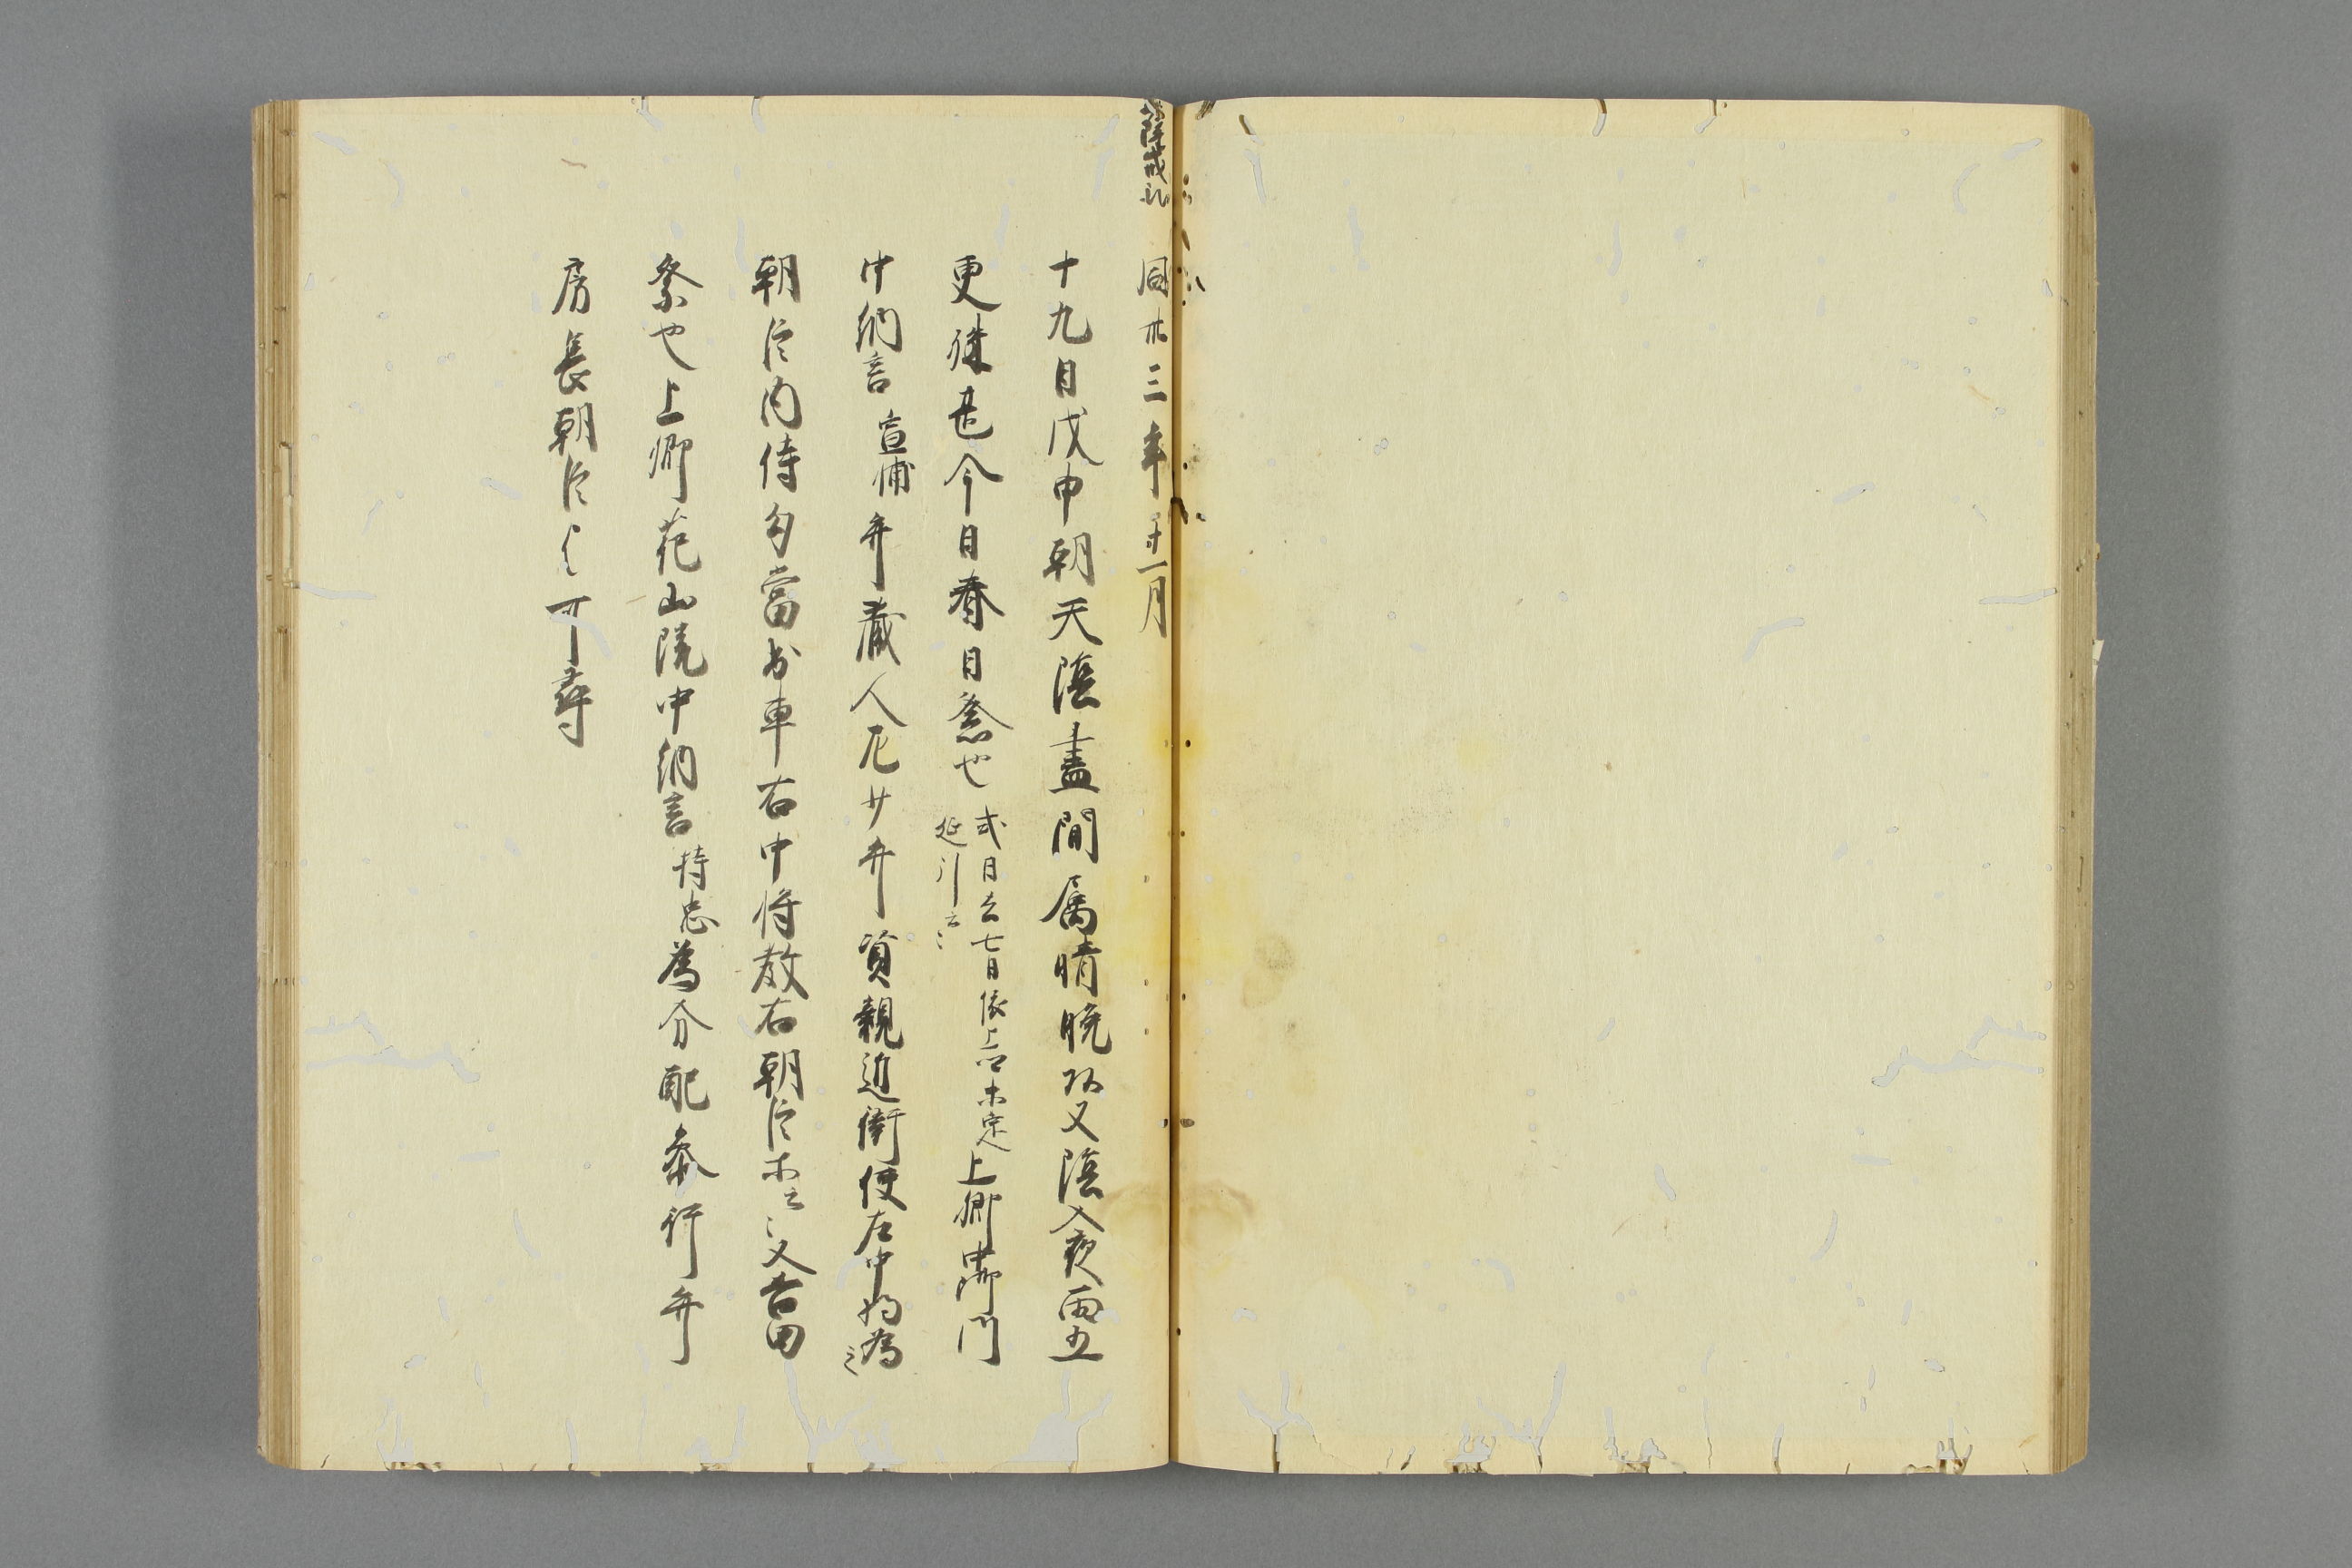 薩戒記
同卅三年十一月
十九日戊申朝天陰盡間属晴晩頭又陰入夜雨五
更殊甚今日春日祭也式日去七日依上卿未定延引云々上卿中御門
中納言宣輔弁蔵人左少弁資親近衛使左中将為之
朝臣内侍勾當出車右中将教右朝臣等云々又吉田
祭也上卿花山院中納言持忠為分配参行弁
房長朝臣云々可尋